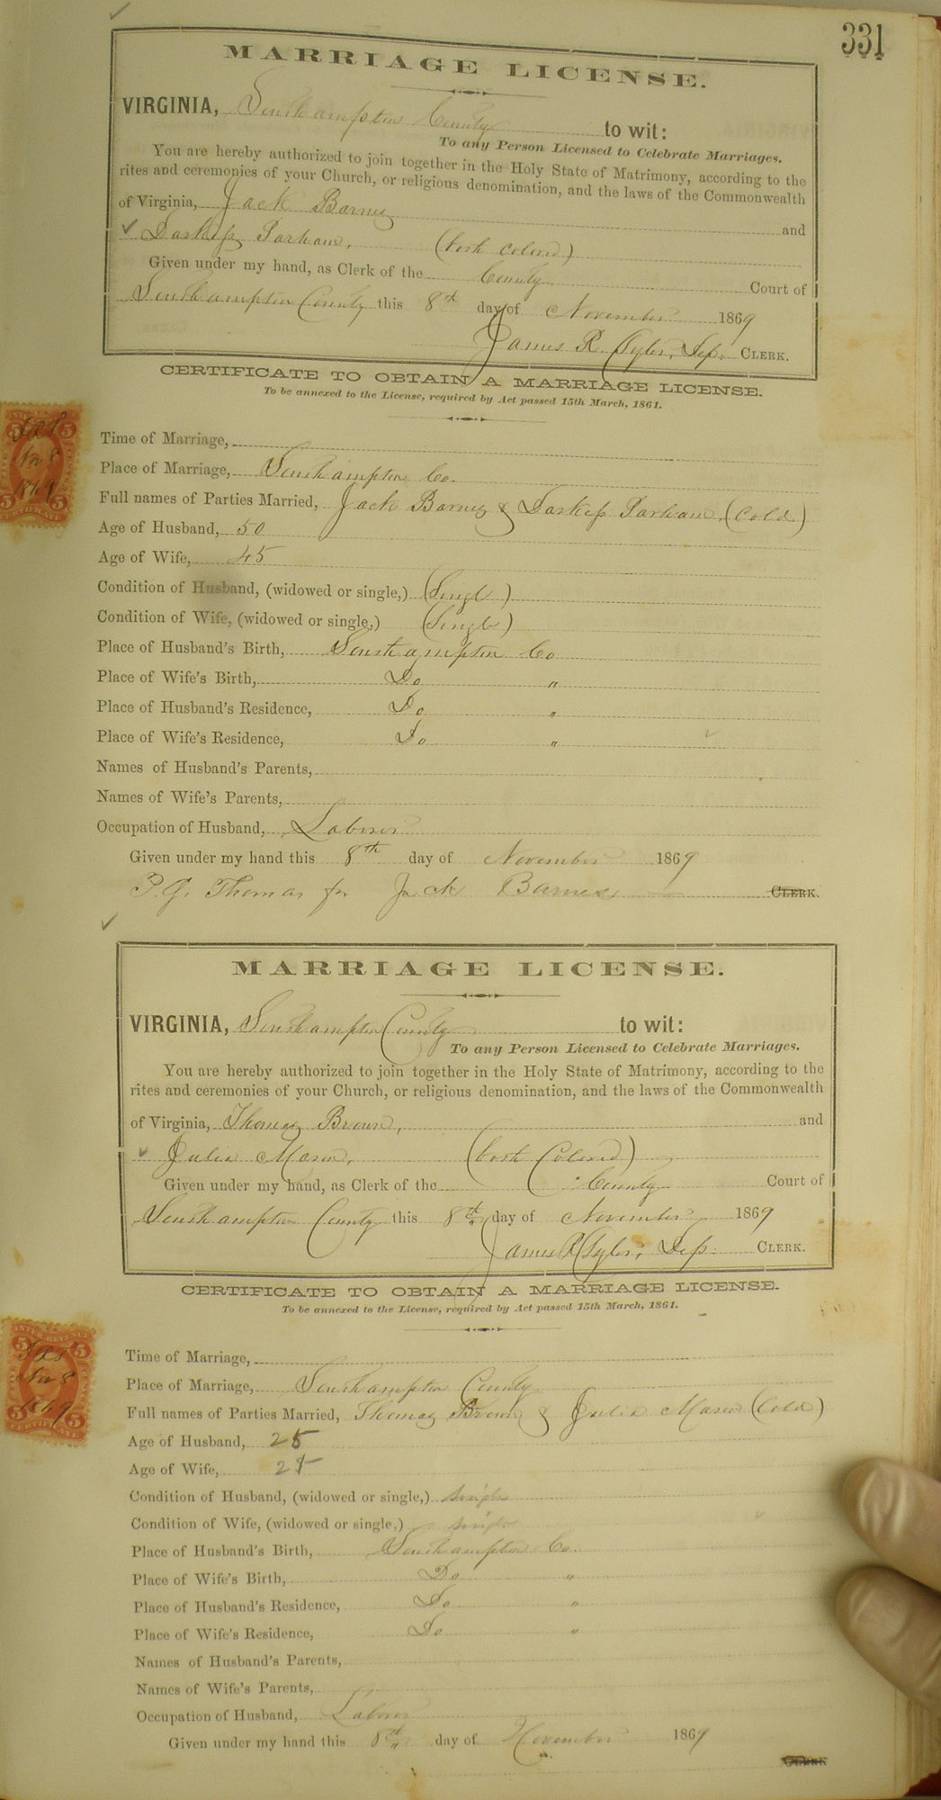 331
MARRIAGE LICENSE.
VIRGINIA, Southampton County to wit:
To any Person Licensed to Celebrate Marriages.
You are hereby authorized to join together in the Holy State of Matrimony, according to the
rites and ceremonies of your Church, or religious denomination, and the laws of the Commonwealth
of Virginia, Jack Barnes and
Parham, (both colored)
Given under my hand, as Clerk of the County Court of
Southampton County this 8th day of November 1869
James R Tyler, Dep. CLERK.
CERTIFICATE TO OBTAIN A MARRIAGE LICENSE.
To be annexed to the License, required by Act passed 15th March, 1861.
Time of Marriage,
Place of Marriage, Southampton Co.
Full names of Parties Married, Jack Barnes & Parham (Cold)
Age of Husband, 50
Age of Wife, 45
Condition of Husband, (widowed or single,) (Single)
Condition of Wife, (widowed or single,) (Single)
Place of Husband's Birth, Southampton Co
Place of Wife's Birth, Do "
Place of Husband's Residence, Do "
Place of Wife's Residence, Do "
Names of Husband's Parents,
Names of Wife's Parents,
Occupation of Husband, Laborer
Given under my hand this 8th day of November 1869
P. J. Thomas for Jack Barnes CLERK.
MARRIAGE LICENSE.
VIRGINIA, Southampton County to wit:
To any Person Licensed to Celebrate Marriages.
You are hereby authorized to join together in the Holy State of Matrimony, according to the
rites and ceremonies of your Church, or religious denomination, and the laws of the Commonwealth
of Virginia, Thomas Brown, and
Julia Mason, (both Colored)
Given under my hand, as Clerk of the County Court of
Southampton County this 8th day of November 1869
James R Tyler, Dep. CLERK.
CERTIFICATE TO OBTAIN A MARRIAGE LICENSE.
To be annexed to the License, required by Act passed 15th March, 1861.
Time of Marriage,
Place of Marriage, Southampton County
Full names of Parties Married, Thomas Brown & Julia Mason (Cold)
Age of Husband, 25
Age of Wife,
Condition of Husband, (widowed or single,) single
Condition of Wife, (widowed or single,) single
Place of Husband's Birth, Southampton Co.
Place of Wife's Birth, Do "
Place of Husband's Residence, Do "
Place of Wife's Residence, Do "
Names of Husband's Parents,
Names of Wife's Parents,
Occupation of Husband, Laborer
Given under my hand this 8th day of November 1869
CLERK